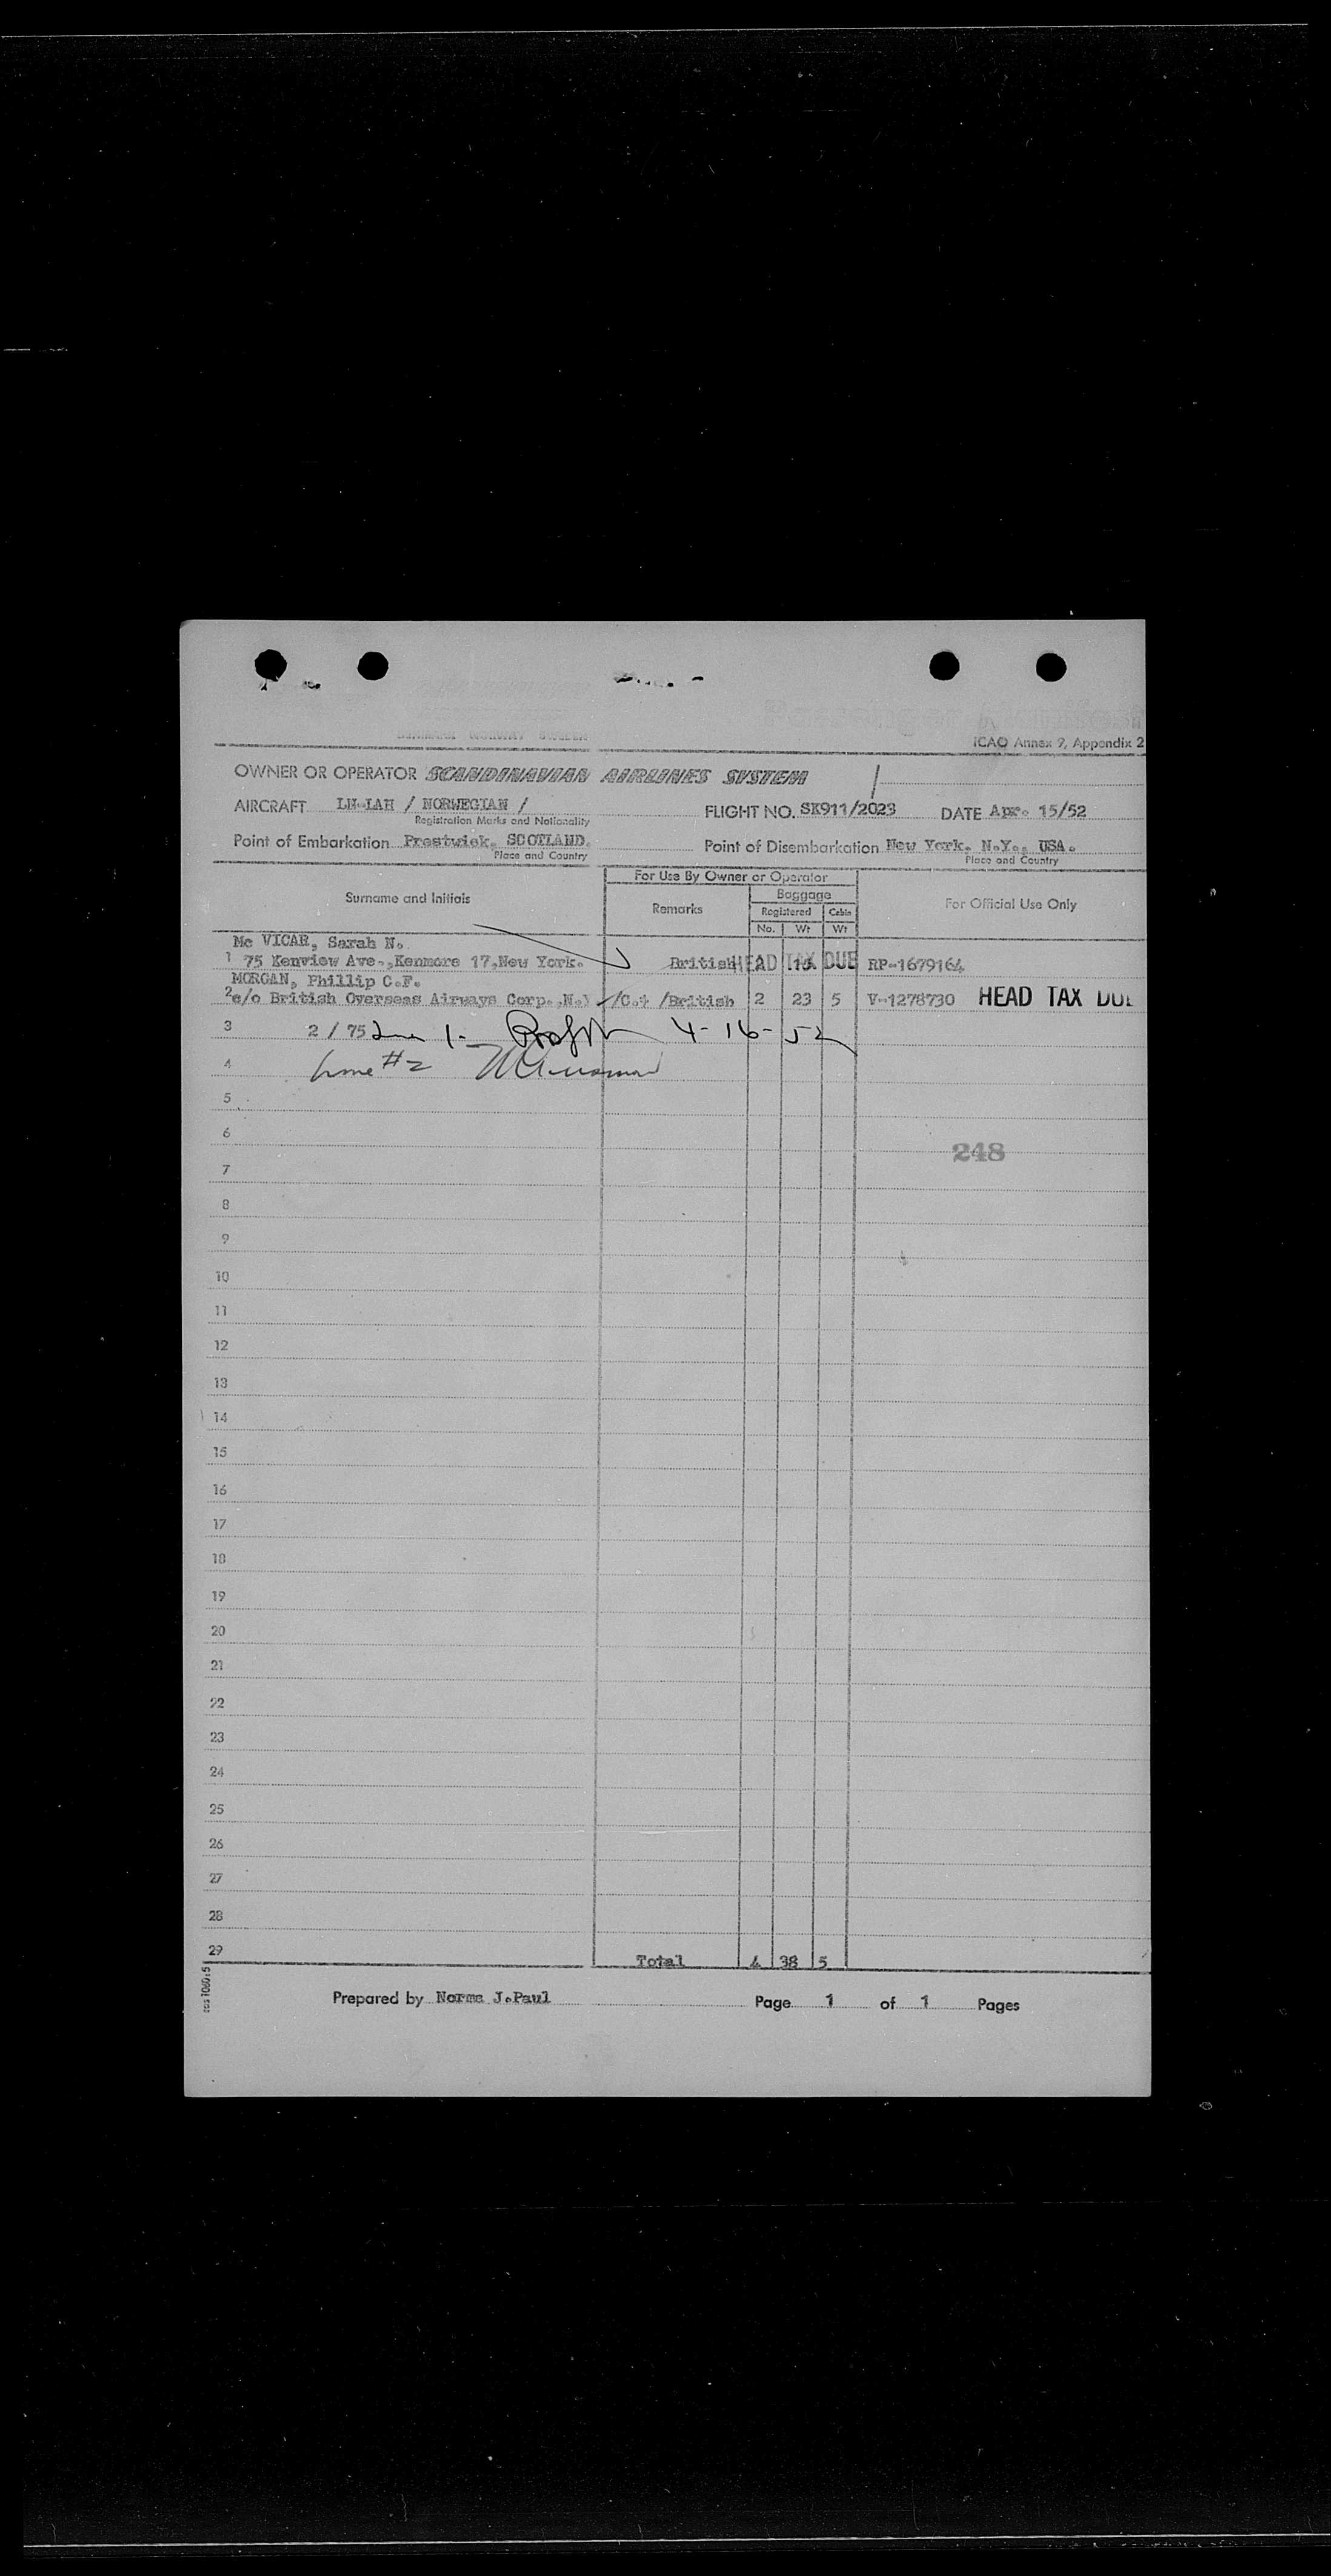 DENMARK NORWAY SWEDEN
ICAO Annex 9, Appendix 2
OWNER OR OPERATOR SCANDINAVIAN AIRLINES SYSTEM
AIRCRAFT LN-LAH / NORWEGIAN / FLIGHT NO. SK911/2023 DATE Apr. 15/52
Registration Marks and Nationality
Point of Embarkation Prestwick, SCOTLAND. Point of Disembarkation New York, N.Y., USA.
Place and Country Place and Country
For Use By Owner or Operator
Surname and Initials Remarks Baggage For Official Use Only
Registered Cabin
No. Wt Wt
Mc VICAR, Sarah N.
1 75 Kenview Ave.,Kenmore 17,New York. British HEAD TAX DUE RP-1679164
MORGAN, Phillip C.F.
2 c/o British Overseas Airways Corp.,N.Y /C.+ /British 2 23 5 V-1278730 HEAD TAX DUE
3 2 / 75 Line 1- 4-16-52
4 Line #2
5
6
248
7
8
9
10
11
12
13
14
15
16
17
18
19
20
21
22
23
24
25
26
27
28
29
Total 4 38 5
Prepared by Norma J.Paul Page 1 of 1 Pages